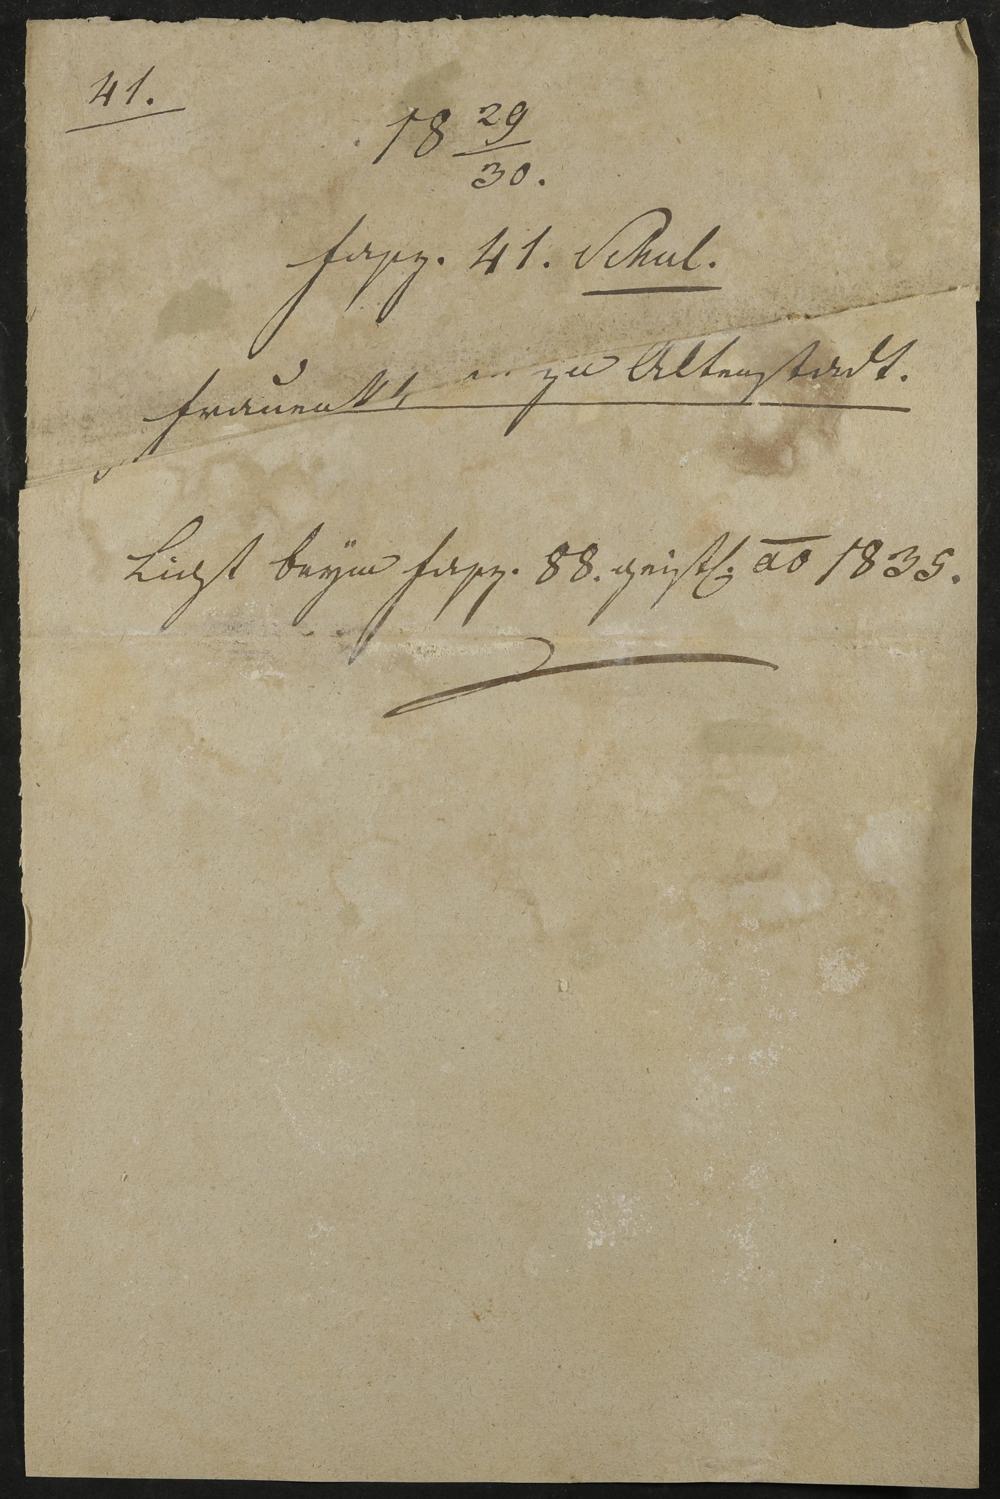 41.
18 29/30.
Fasz. 41. Schul.
Frauen zu Altenstadt.
Liegt beÿm Fasz. 88. geistl: ao 1835.